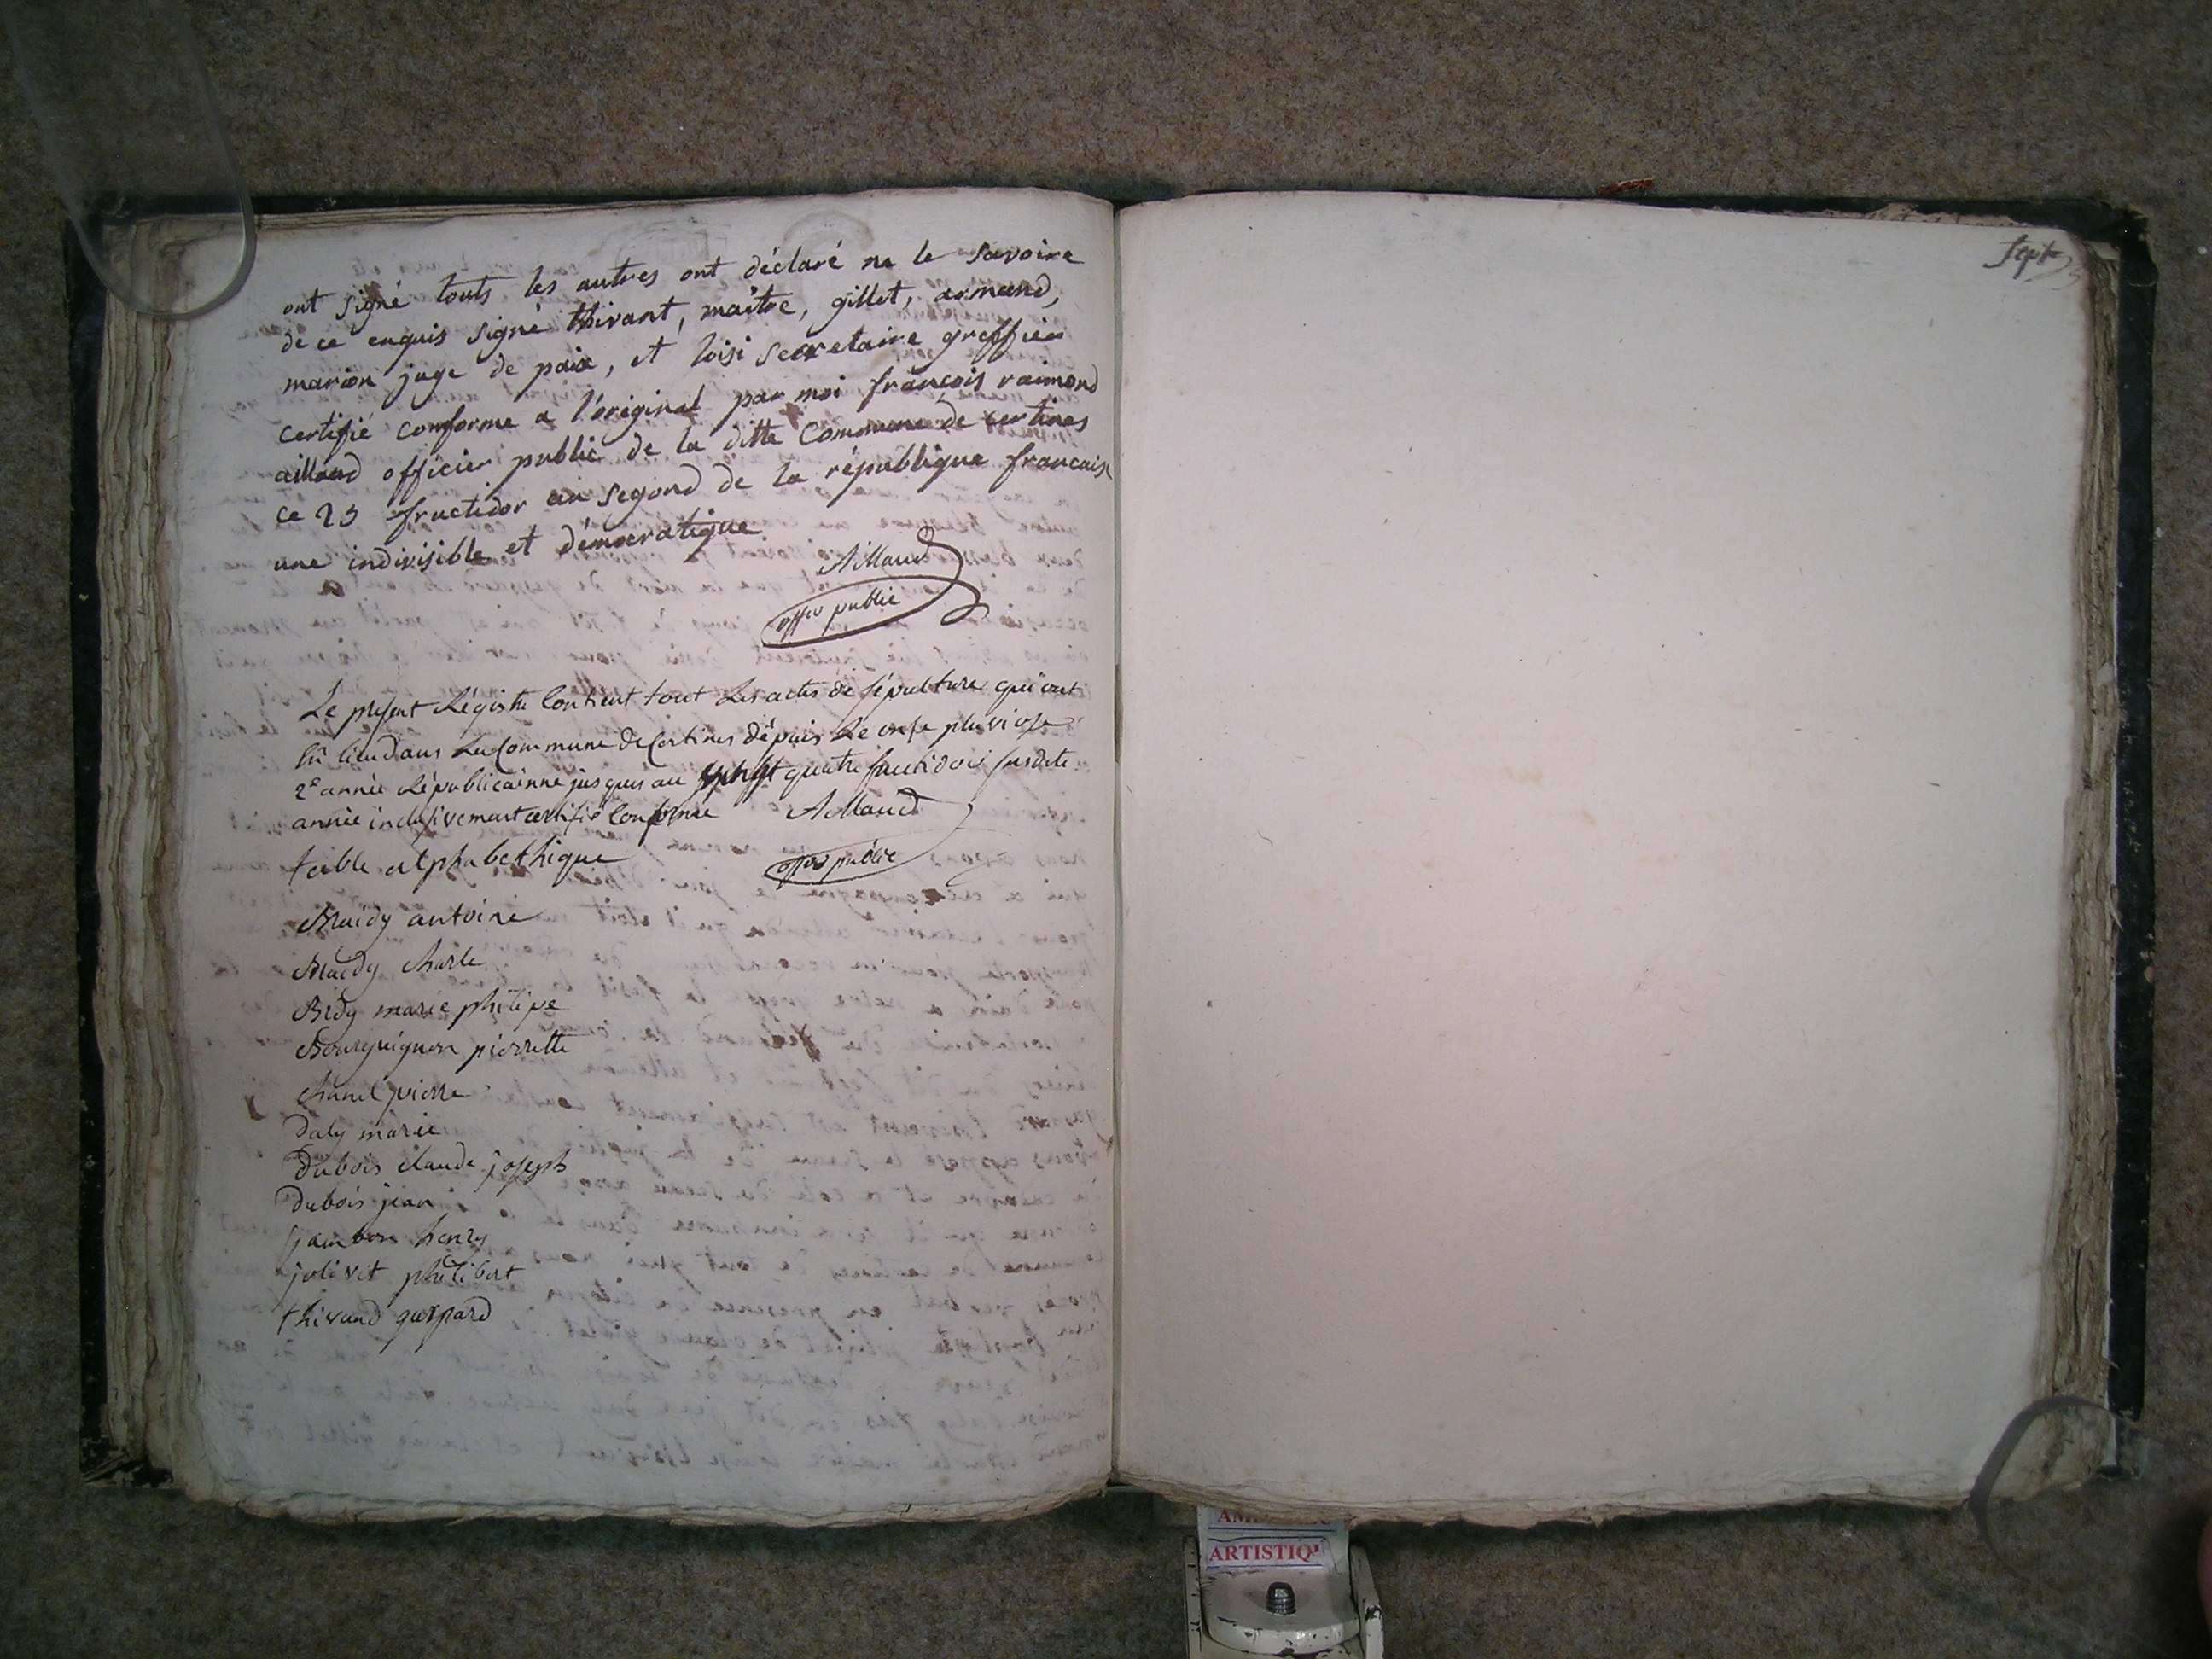 ont signé touts les autres ont déclaré ne le savoire
de ce enquis signé thivant, maître, gillet, armand,
marion juge de paix, et loisi secretaire greffier
certifié comforme a l'original par moi françois raimond
aillaud officier public de la ditte Commune de certines
ce 25 fructidor an segond de la république francaise
une indivisible et démocratique
Aillaud
offer public
Le present Régistre Contient tout Les actes de sépulture qui ont
Eü lieu dans La Commune de Certines dépuis Le onse pluviose
2e année Républicainne jusques au quatre fructidore susdite
année inclusivement certifié Conforme Aillaud
table alphabethique offer public
antoine
Charle
Bidy marie philipe
Bourguignon pierrette
Chanel pierre
Daly marie
Dubois claude joseph
Dubois jean
jambon henry
jolivet philibert
thivand gaspard
Sept
ARTISTIQU